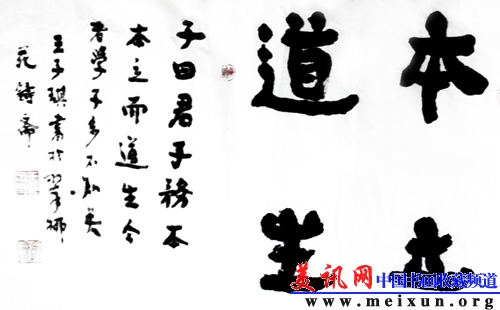 本立
道生
子曰君子務本
本立而道生今
者學子多不知矣
王子琪書於翠柳
苑齋
美讯网 中国书画收藏频道
www.meixun.org